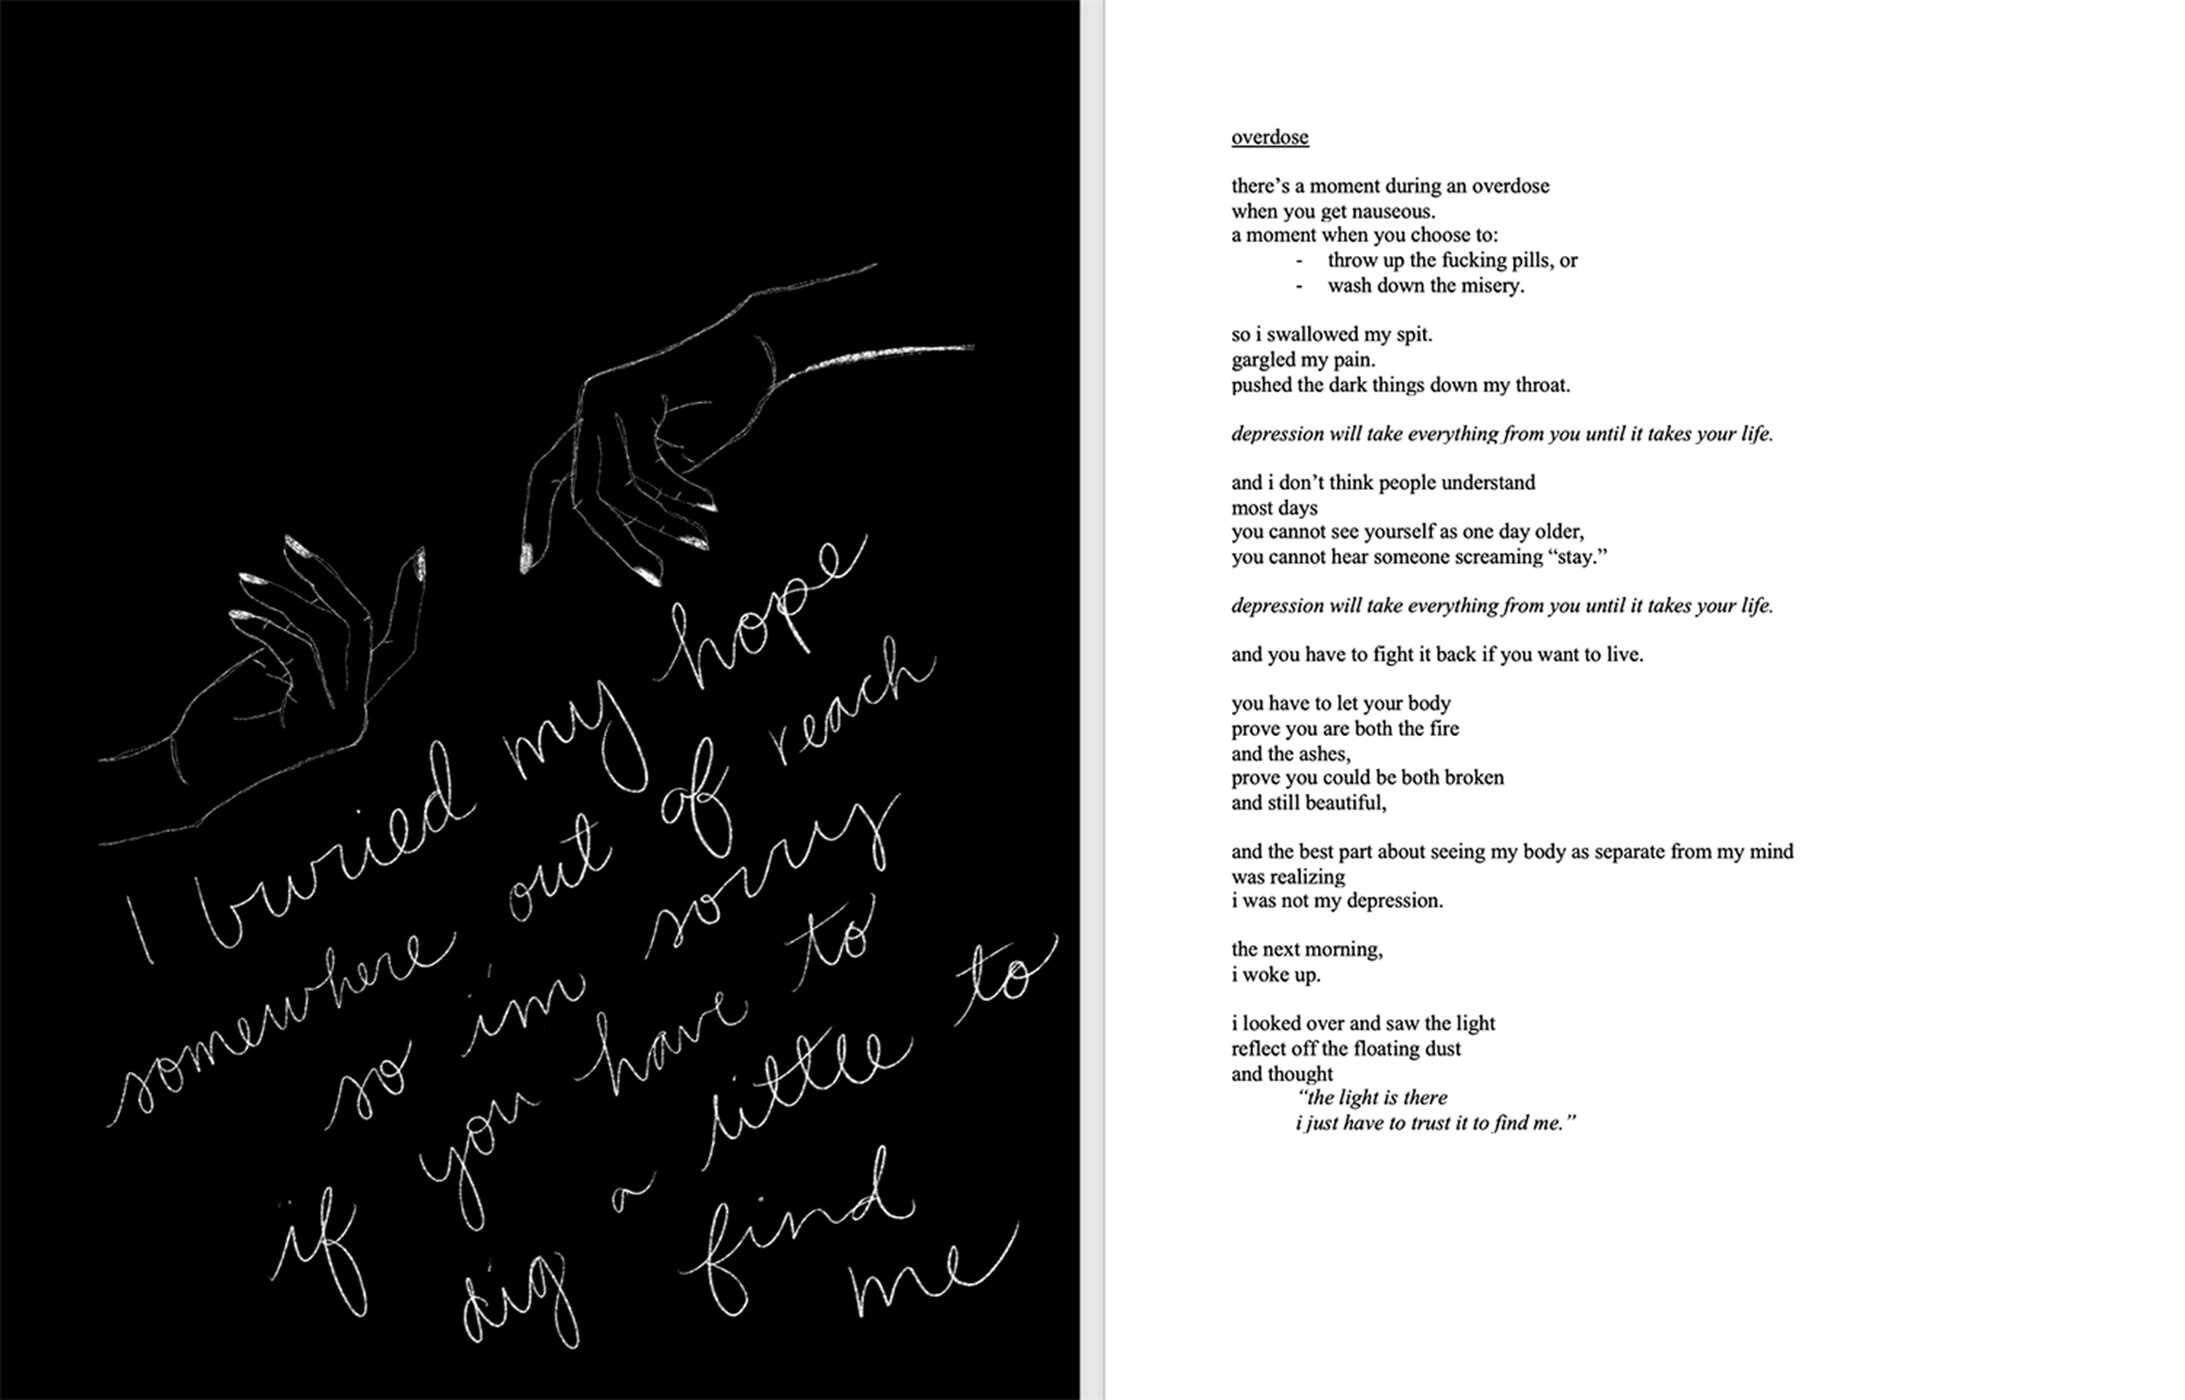 I buried my hope
somewhere out of reach
so i'm sorry
if you have to
dig a little to
find me
overdose
there's a moment during an overdose
when you get nauseous.
a moment when you choose to:
- throw up the fucking pills, or
- wash down the misery.
so i swallowed my spit.
gargled my pain.
pushed the dark things down my throat.
depression will take everything from you until it takes your life.
and i don’t think people understand
most days
you cannot see yourself as one day older,
you cannot hear someone screaming “stay.”
depression will take everything from you until it takes your life.
and you have to fight it back if you want to live.
you have to let your body
prove you are both the fire
and the ashes,
prove you could be both broken
and still beautiful,
and the best part about seeing my body as separate from my mind
was realizing
i was not my depression.
the next morning,
i woke up.
i looked over and saw the light
reflect off the floating dust
and thought
“the light is there
i just have to trust it to find me.”